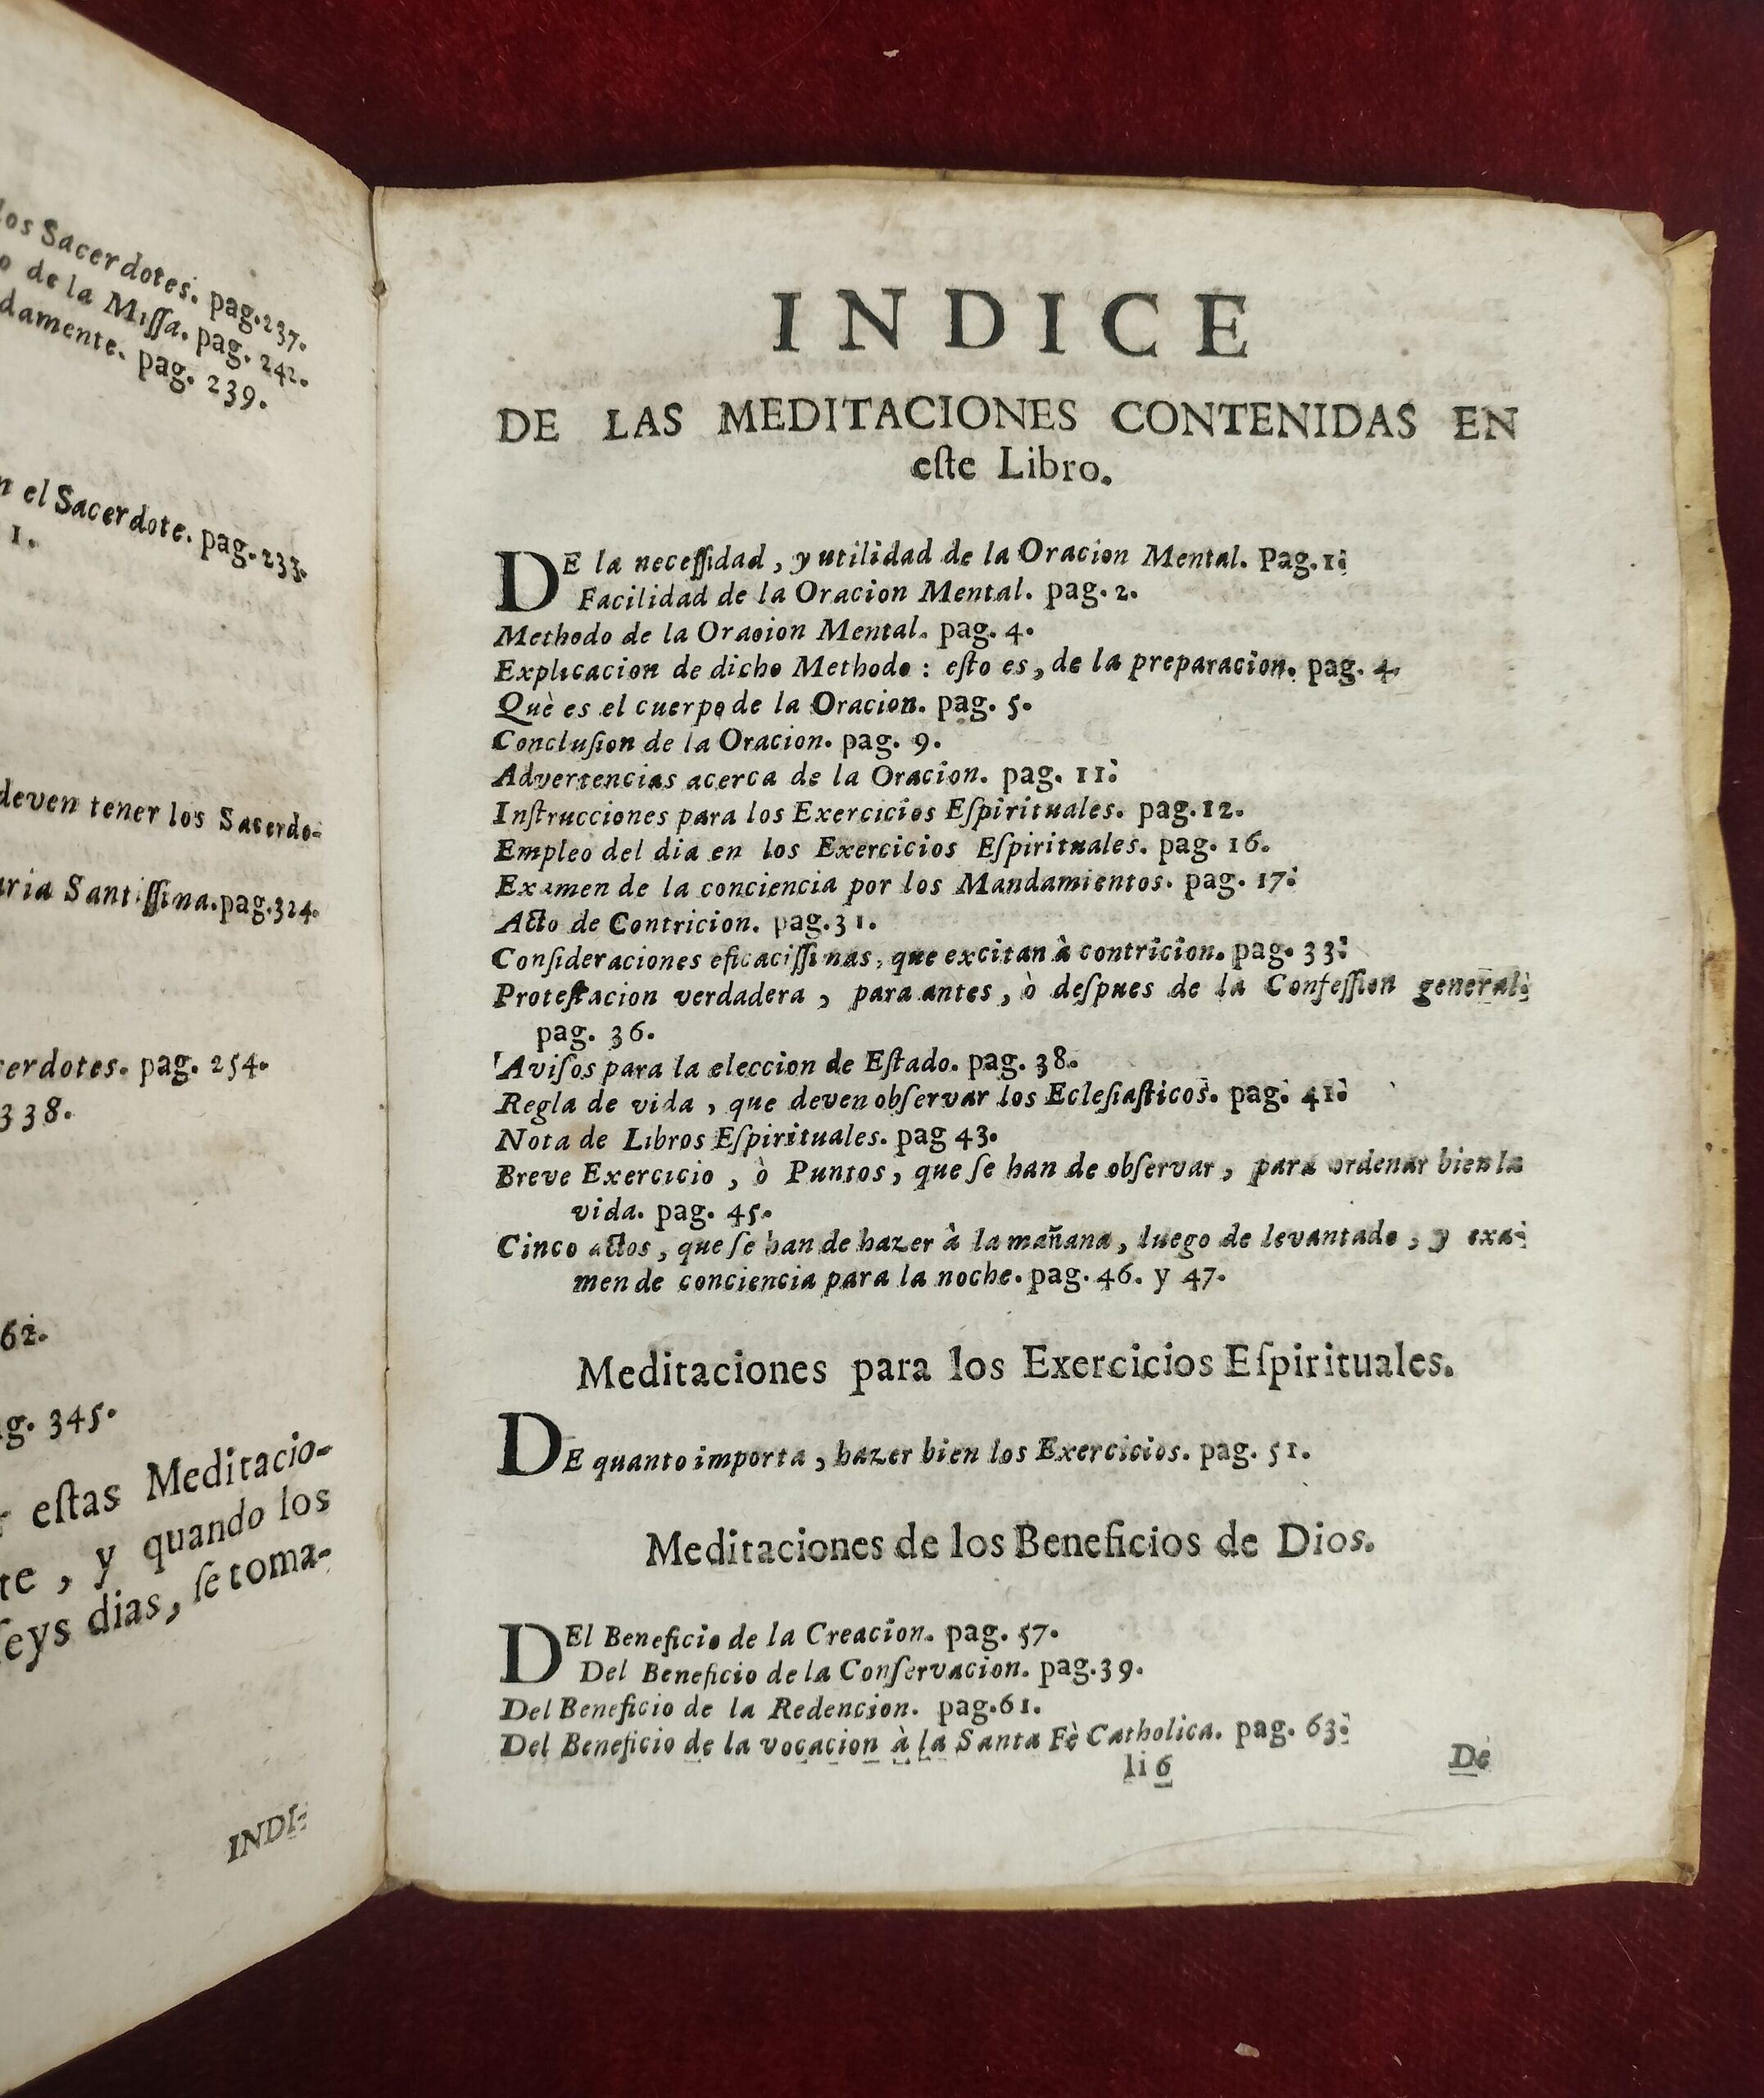 los Sacerdotes. pag.237.
o de la Missa. pag. 242.
damente. pag. 239.
n el Sacerdote. pag.233.
1.
deven tener los Sacerdo-
aria Santissima.pag.324.
cerdotes. pag. 254.
338.
62.
ag. 345.
r eſtas Meditacio-
te , y quando los
ſeys dias, ſe toma-
INDI-
INDICE
DE LAS MEDITACIONES CONTENIDAS EN
eſte Libro.
DE la neceſſidad , y utilidad de la Oracion Mental. Pag.1.
Facilidad de la Oracion Mental. pag. 2.
Methodo de la Oracion Mental. pag. 4.
Explicacion de dicho Methodo : eſto es, de la preparacion. pag. 4.
Què es el cuerpo de la Oracion. pag. 5.
Concluſion de la Oracion. pag. 9.
Advertencias acerca de la Oracion. pag. 11.
Inſtrucciones para los Exercicios Eſpirituales. pag.12.
Empleo del dia en los Exercicios Eſpirituales. pag. 16.
Examen de la conciencia por los Mandamientos. pag. 17.
Acto de Contricion. pag.31.
Conſideraciones eficaciſſimas, que excitan à contricion. pag. 33.
Proteſtacion verdadera , para antes , ò deſpues de la Confeſſion general.
pag. 36.
Aviſos para la eleccion de Eſtado. pag. 38.
Regla de vida , que deven obſervar los Ecleſiaſticos. pag. 41.
Nota de Libros Eſpirituales. pag 43.
Breve Exercicio , ò Puntos , que ſe han de obſervar , para ordenar bien la
vida. pag. 45.
Cinco actos , que ſe han de hazer à la mañana , luego de levantado , y exa-
men de conciencia para la noche. pag. 46. y 47.
Meditaciones para los Exercicios Eſpirituales.
DE quanto importa , hazer bien los Exercicios. pag. 51.
Meditaciones de los Beneficios de Dios.
DEl Beneficio de la Creacion. pag. 57.
Del Beneficio de la Conſervacion. pag.39.
Del Beneficio de la Redencion. pag.61.
Del Beneficio de la vocacion à la Santa Fè Catholica. pag. 63.
Ii 6
De